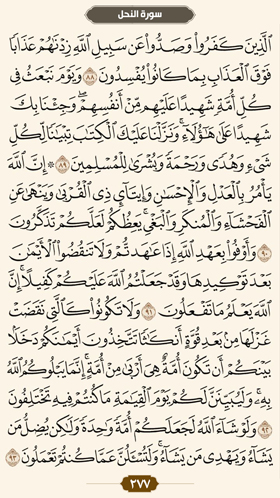 سورة النحل
ٱلَّذِينَ كَفَرُواْ وَصَدُّواْ عَن سَبِيلِ ٱللَّهِ زِدۡنَٰهُمۡ عَذَابٗا
فَوۡقَ ٱلۡعَذَابِ بِمَا كَانُواْ يُفۡسِدُونَ ٨٨ وَيَوۡمَ نَبۡعَثُ فِي
كُلِّ أُمَّةٖ شَهِيدًا عَلَيۡهِم مِّنۡ أَنفُسِهِمۡۖ وَجِئۡنَا بِكَ
شَهِيدًا عَلَىٰ هَٰٓؤُلَآءِۚ وَنَزَّلۡنَا عَلَيۡكَ ٱلۡكِتَٰبَ تِبۡيَٰنٗا لِّكُلِّ
شَيۡءٖ وَهُدٗى وَرَحۡمَةٗ وَبُشۡرَىٰ لِلۡمُسۡلِمِينَ ٨٩ ۞ إِنَّ ٱللَّهَ
يَأۡمُرُ بِٱلۡعَدۡلِ وَٱلۡإِحۡسَٰنِ وَإِيتَآيِٕ ذِي ٱلۡقُرۡبَىٰ وَيَنۡهَىٰ عَنِ
ٱلۡفَحۡشَآءِ وَٱلۡمُنكَرِ وَٱلۡبَغۡيِۚ يَعِظُكُمۡ لَعَلَّكُمۡ تَذَكَّرُونَ
٩٠ وَأَوۡفُواْ بِعَهۡدِ ٱللَّهِ إِذَا عَٰهَدتُّمۡ وَلَا تَنقُضُواْ ٱلۡأَيۡمَٰنَ
بَعۡدَ تَوۡكِيدِهَا وَقَدۡ جَعَلۡتُمُ ٱللَّهَ عَلَيۡكُمۡ كَفِيلًاۚ إِنَّ
ٱللَّهَ يَعۡلَمُ مَا تَفۡعَلُونَ ٩١ وَلَا تَكُونُواْ كَٱلَّتِي نَقَضَتۡ
غَزۡلَهَا مِنۢ بَعۡدِ قُوَّةٍ أَنكَٰثٗا تَتَّخِذُونَ أَيۡمَٰنَكُمۡ دَخَلَۢا
بَيۡنَكُمۡ أَن تَكُونَ أُمَّةٌ هِيَ أَرۡبَىٰ مِنۡ أُمَّةٍۚ إِنَّمَا يَبۡلُوكُمُ ٱللَّهُ
بِهِۦۚ وَلَيُبَيِّنَنَّ لَكُمۡ يَوۡمَ ٱلۡقِيَٰمَةِ مَا كُنتُمۡ فِيهِ تَخۡتَلِفُونَ
٩٢ وَلَوۡ شَآءَ ٱللَّهُ لَجَعَلَكُمۡ أُمَّةٗ وَٰحِدَةٗ وَلَٰكِن يُضِلُّ مَن
يَشَآءُ وَيَهۡدِي مَن يَشَآءُۚ وَلَتُسۡـَٔلُنَّ عَمَّا كُنتُمۡ تَعۡمَلُونَ ٩٣
٢٧٧